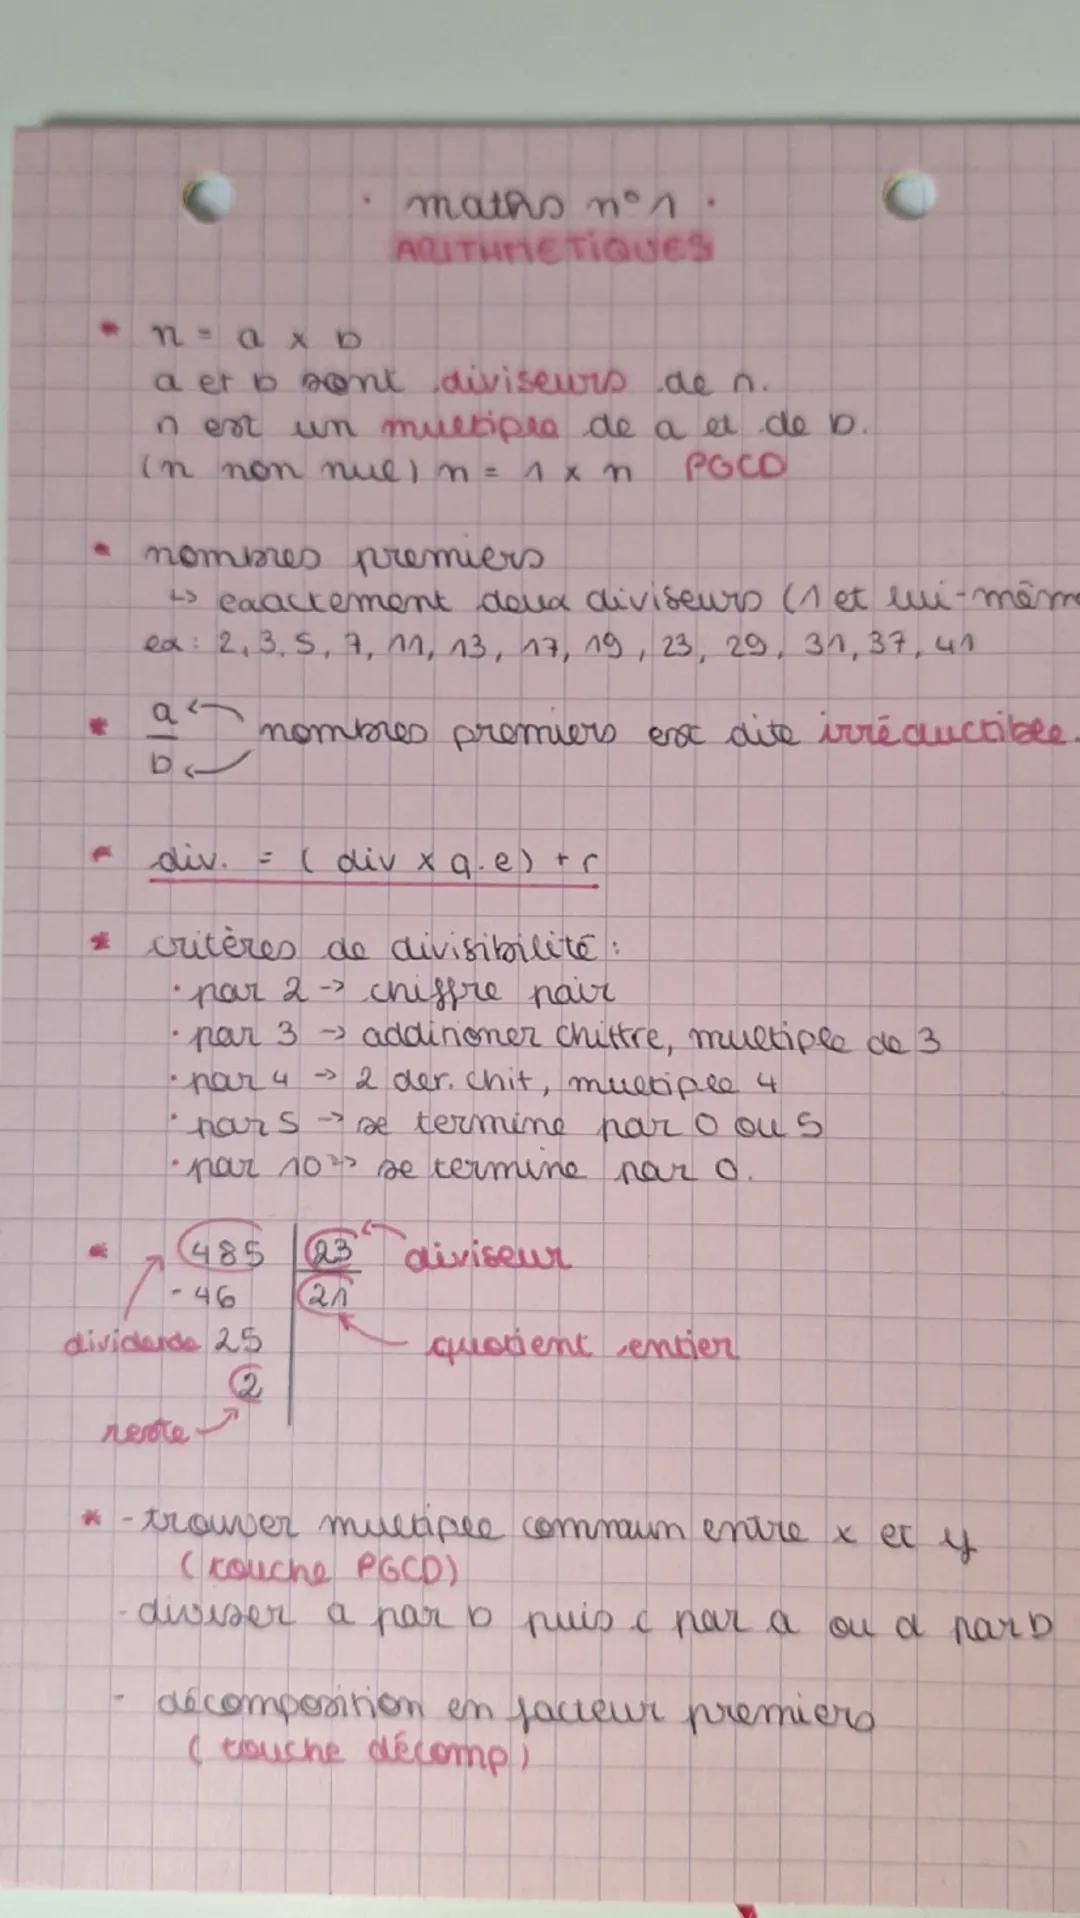 · maths n°1 ·
ARITHMETIQUES
* n = a x b
a et b sont diviseurs de n.
n est un multiple de a et de b.
(n non nul) n = 1 x n PGCD
* nombres premiers
↳ exactement deux diviseurs (1 et lui-même
ex : 2, 3, 5, 7, 11, 13, 17, 19, 23, 29, 31, 37, 41
* a
b
nombres premiers est dite irréductible.
* div. = ( div x q.e) + r
* critères de divisibilité :
· par 2 -> chiffre pair
· par 3 -> additionner chiffre, multiple de 3
· par 4 -> 2 der. chif, multiple 4
· par 5 -> se termine par 0 ou 5
· par 10 -> se termine par 0.
* 485 23 diviseur
- 46 21
dividende 25 quotient entier
2
reste
* - trouver multiple commun entre x et y
( touche PGCD)
- diviser a par b puis c par a ou d par b
- décomposition en facteur premiers
( touche décomp)